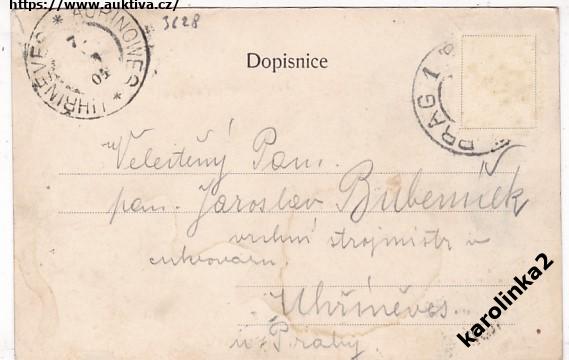 https://www.auktiva.cz/
3628
* AUŘINOWES * UHŘÍNĚVES
04
Dopisnice
PRAG 1
Velectěný Pan.
pan. Jaroslav Bubeníček
vrchní strojmistr v
cukrovaru
Uhříněves.
u Prahy
karolinka2